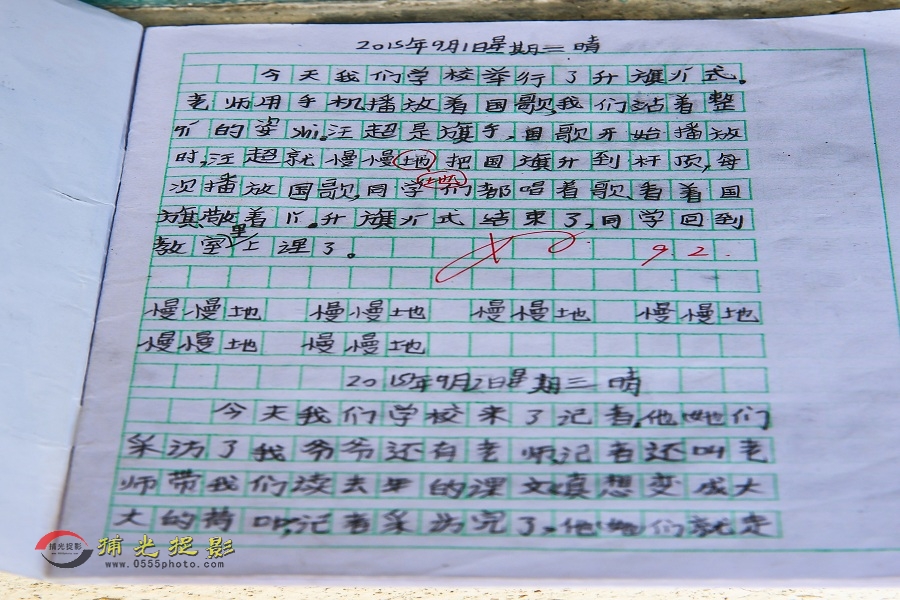 2015年9月1日星期二 晴
今天我们学校举行了升旗亓式。
老师用手机播放着国歌,我们站着整
亓的姿shi。汪超是旗手,国歌开始播放
时,汪超就慢慢地把国旗升到杆顶,每
地
次播放国歌,同学们都唱着歌,看着国
旗敬着 。升旗亓式结束了,同学回到
里
教室上课了。
92.
慢慢地 慢慢地 慢慢地 慢慢地
慢慢地 慢慢地
2015年9月2日星期三 晴
今天我们学校来了记者,他她们
采访了我爷爷还有老师,记者还叫老
师带我们读去年的课文《真想变成大
大的荷叶》,记者采访完了,他她们就走
捕光捉影
捕光捉影
www.0555photo.com